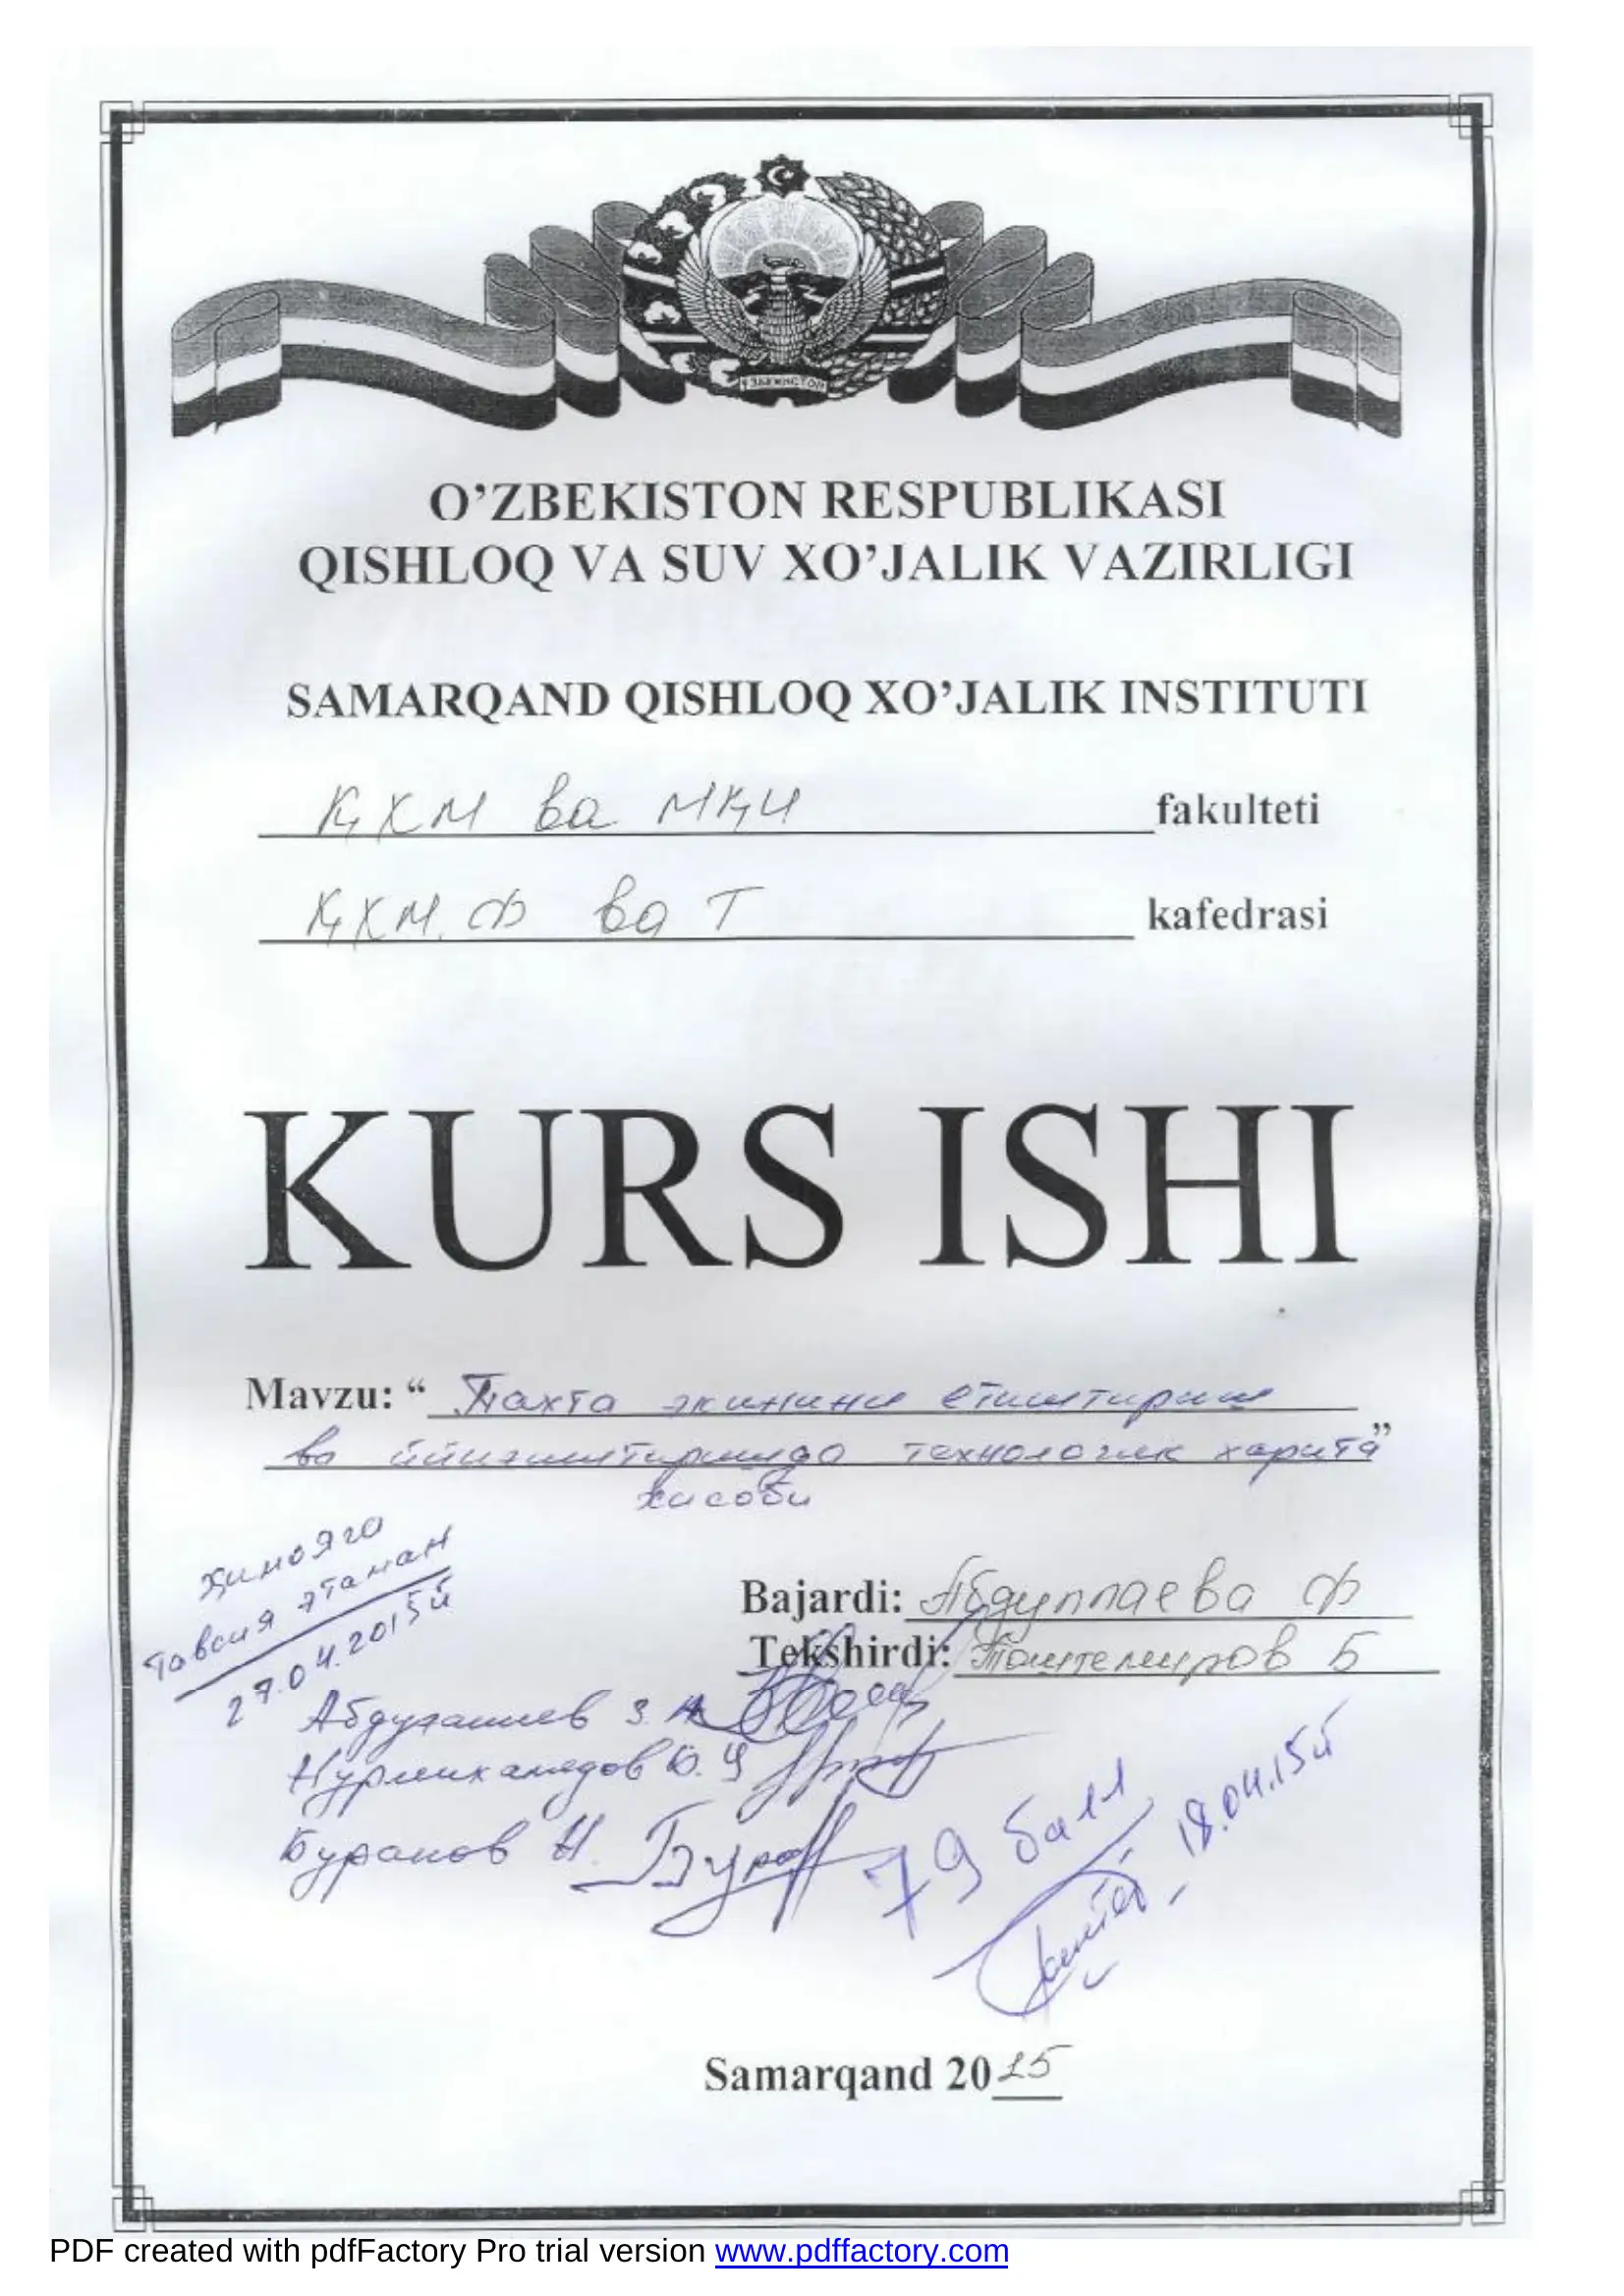 ЎЗБЕКИСТОН
O’ZBEKISTON RESPUBLIKASI
QISHLOQ VA SUV XO’JALIK VAZIRLIGI
SAMARQAND QISHLOQ XO’JALIK INSTITUTI
ҚХМ ва МҚИ fakulteti
ҚХМ.Ф ва Т kafedrasi
KURS ISHI
Mavzu: “ Пахта экинини етиштириш
ва йиғиштиришда технологик харита”
хисоби
Ҳимояга
тавсия этаман
27.04.2015й
Bajardi: Абдуллаева Ф
Tekshirdi: Тоштемиров Б
Абдуганиев З.
Нурмихамедов Ю.
Буранов Н.
79 балл
18.04.15й
Samarqand 2015
PDF created with pdfFactory Pro trial version www.pdffactory.com